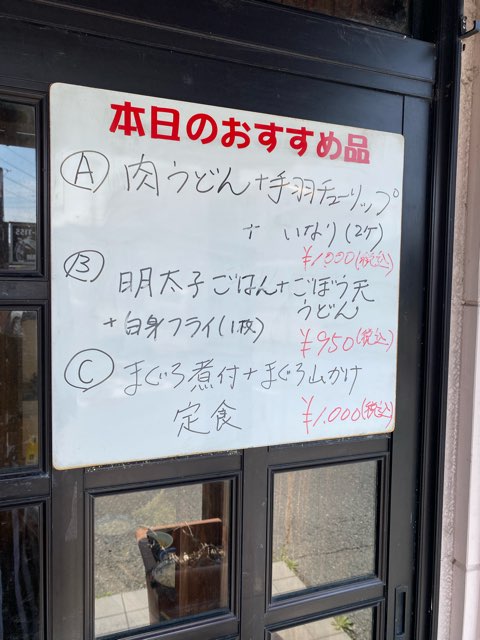 本日のおすすめ品
Ⓐ 肉うどん+手羽チューリップ
+ いなり(2ケ)
¥1,000(税込)
Ⓑ 明太子ごはん+ごぼう天
うどん
+白身フライ(1枚)
¥950(税込)
Ⓒ まぐろ煮付+まぐろ山かけ
定食
¥1,000(税込)